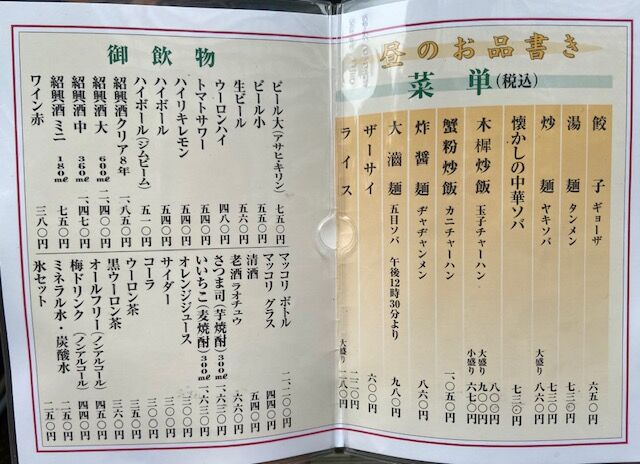 昼のお品書き
菜単(税込)
餃子 ギョーザ 六五〇円
湯麺 タンメン 七三〇円
炒麺 ヤキソバ 七三〇円
大盛り 八六〇円
懐かしの中華ソバ 七三〇円
木樨炒飯 玉子チャーハン 八〇〇円
大盛り 九〇〇円
小盛り 六七〇円
蟹粉炒飯 カニチャーハン 一、〇五〇円
炸醤麺 ヂャヂャンメン 八六〇円
大滷麺 五目ソバ 午後12時30分より 九八〇円
ザーサイ 六〇〇円
ライス 二二〇円
大盛り 二八〇円
御飲物
ビール大(アサヒ・キリン) 七五〇円
ビール小 五五〇円
生ビール 五六〇円
ウーロンハイ 四八〇円
トマトサワー 五四〇円
ハイリキレモン 五四〇円
ハイボール 五四〇円
ハイボール(ジムビーム) 五一〇円
紹興酒クリア8年 一、八五〇円
紹興酒 大 600㎖ 二、四〇〇円
紹興酒 中 360㎖ 一、四七〇円
紹興酒 ミニ 180㎖ 七五〇円
ワイン赤 三八〇円
マッコリ ボトル 二、二〇〇円
マッコリ グラス 五四〇円
清酒 四四〇円
老酒 ラオチュウ 六六〇円
さつま司(芋焼酎)300㎖ 一、六三〇円
いいちこ(麦焼酎)300㎖ 一、六三〇円
オレンジジュース 三〇〇円
サイダー 三〇〇円
コーラ 三〇〇円
ウーロン茶 三五〇円
黒ウーロン茶 三六〇円
オールフリー(ノンアルコール) 四五〇円
梅ドリンク(ノンアルコール) 四四〇円
ミネラル水・炭酸水 二五〇円
氷セット 二五〇円